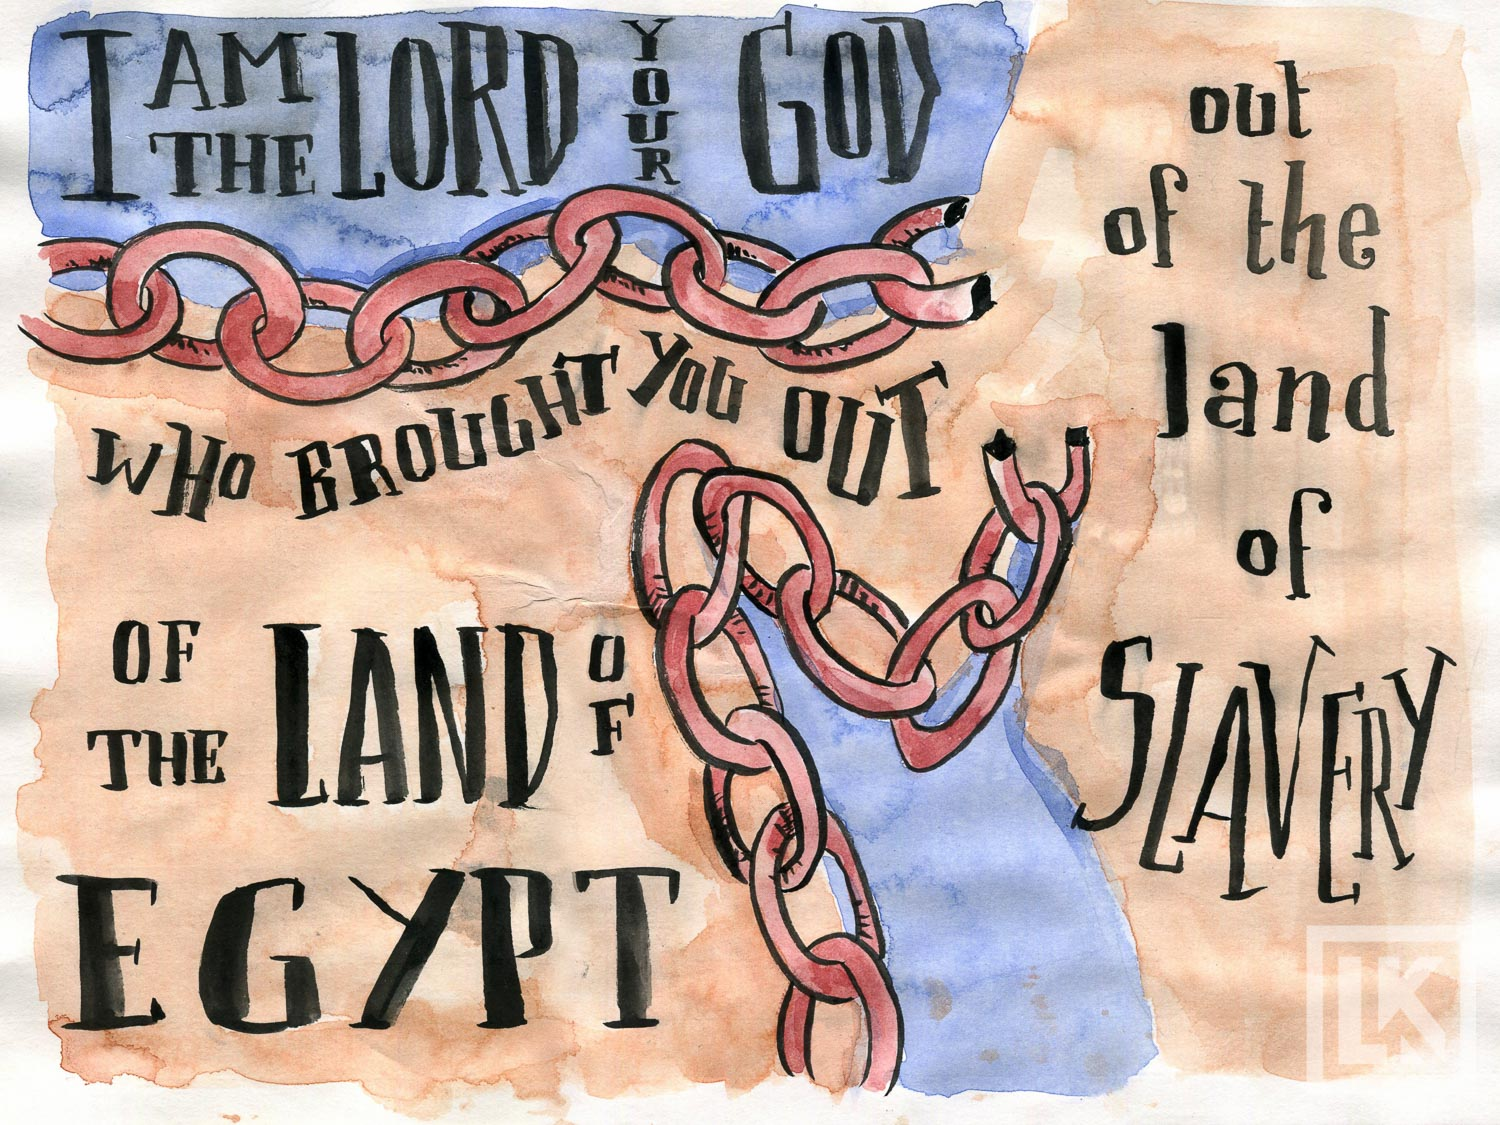 I AM THE LORD YOUR GOD
WHO BROUGHT YOU OUT
OF THE LAND OF
EGYPT
out
of the
land
of
SLAVERY
LK